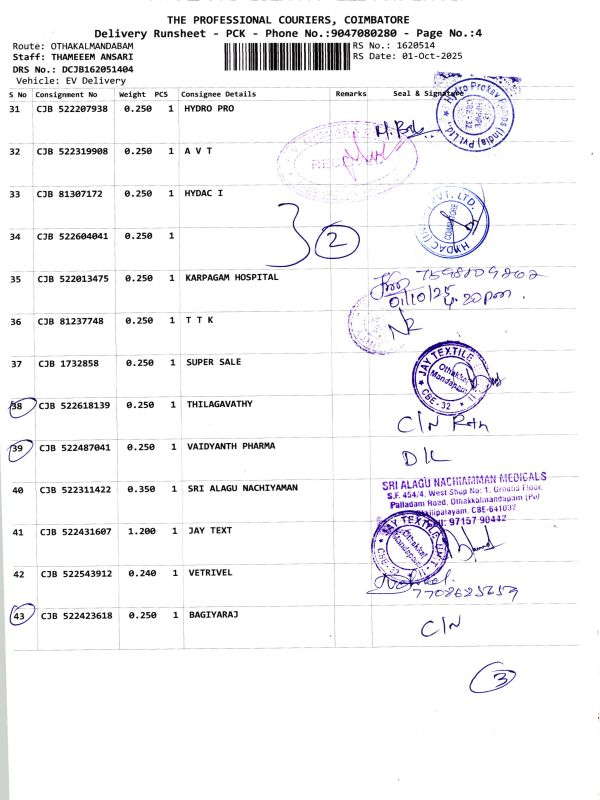 THE PROFESSIONAL COURIERS, COIMBATORE
Delivery Runsheet - PCK - Phone No.:9047080280 - Page No.:4
Route: OTHAKALMANDABAM
RS No.: 1620514
Staff: THAMEEEM ANSARI
RS Date: 01-Oct-2025
DRS No.: DCJB162051404
Vehicle: EV Delivery
S No Consignment No Weight PCS Consignee Details Remarks Seal & Signature
31 CJB 522207938 0.250 1 HYDRO PRO
32 CJB 522319908 0.250 1 A V T
33 CJB 81307172 0.250 1 HYDAC I
34 CJB 522604041 0.250 1
2
35 CJB 522013475 0.250 1 KARPAGAM HOSPITAL
7598809862
01/10/25
4.20pm.
36 CJB 81237748 0.250 1 T T K
NR
37 CJB 1732858 0.250 1 SUPER SALE
JAY TEXTILE
Othakkal
Mandapam
CBE-32
38 CJB 522618139 0.250 1 THILAGAVATHY
C/N Rtn
39 CJB 522487041 0.250 1 VAIDYANTH PHARMA
D/L
40 CJB 522311422 0.350 1 SRI ALAGU NACHIYAMAN
SRI ALAGU NACHIAMMAN MEDICALS
S.F. 454/4, West Shop No: 1, Ground Floor,
Palladam Road, Othakkalmandapam (Po)
CBE-641032
97157 90442
41 CJB 522431607 1.200 1 JAY TEXT
JAY TEXTILE
Othakkal
Mandapam
CBE-32
42 CJB 522543912 0.240 1 VETRIVEL
43 CJB 522423618 0.250 1 BAGIYARAJ
C/N
3